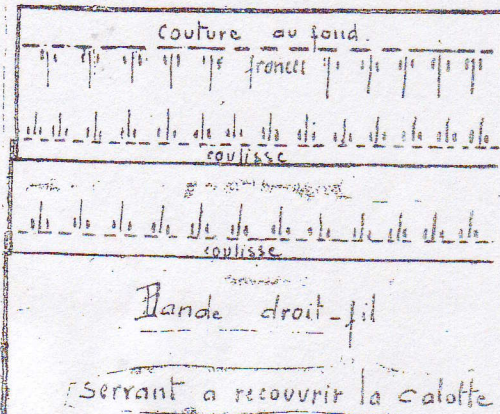 Couture au fond.
fronces
coulisse
coulisse
Bande droit-fil
Serrant a recouvrir la calotte